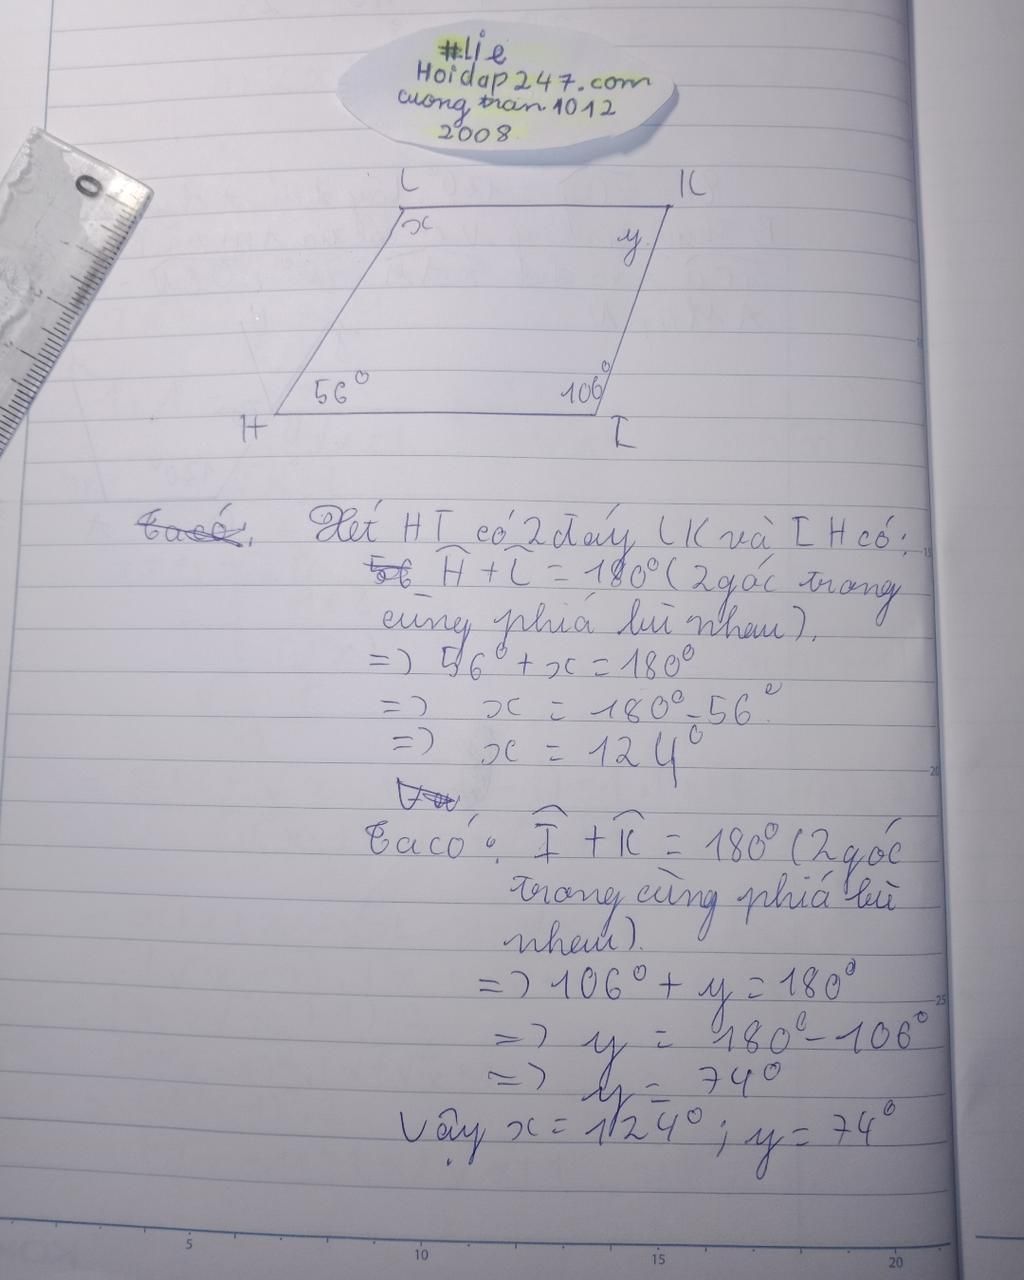 #Lie
Hoidap247.com
cuongtran1012
2008
0
L
K
x
y
56°
106°
H
I
Ta có:
Xét HT có 2 đáy LK và IH có:
56 Ĥ + L̂ = 180° (2 góc trong
cùng phiá bù nhau).
=> 56° + x = 180°
=> x = 180° - 56°
=> x = 124°
Ta có: Î + K̂ = 180° (2 góc
trong cùng phiá bù
nhau).
=> 106° + y = 180°
=> y = 180° - 106°
=> y = 74°
Vậy x = 124° ; y = 74°
15
20
25
5
10
15
20